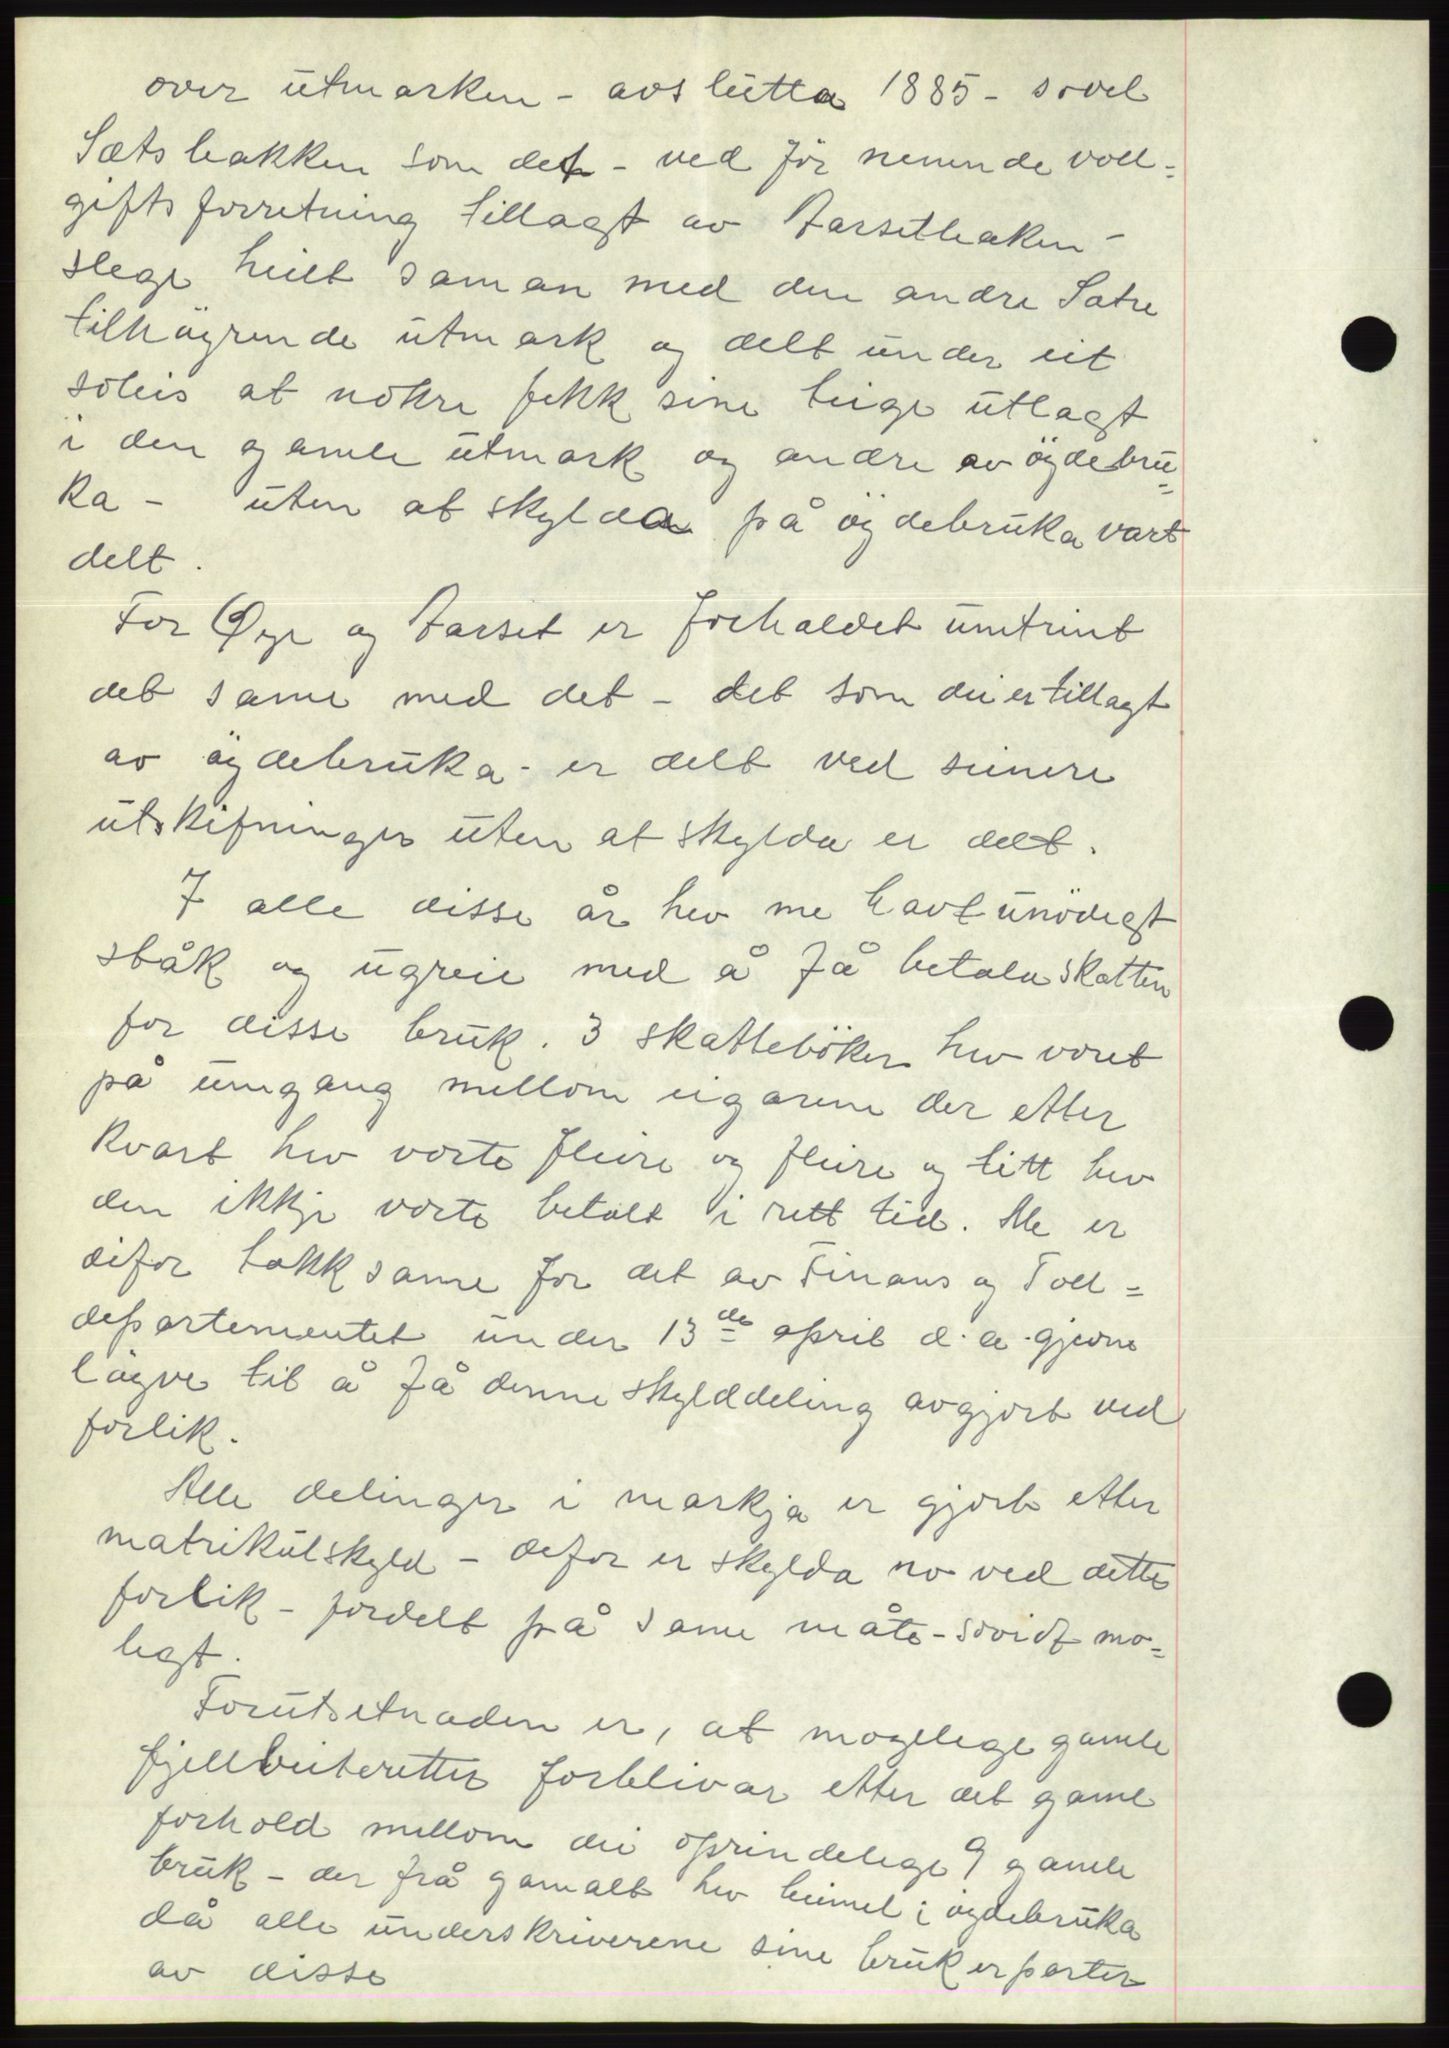 over utmarken - avslutta 1885 - sovel
Sætsbakken som det - ved før nemnde vold=
giftsforretning tillagt av Aarsetbaken -
slege heilt saman med den andre Sætre
tilhøyrende utmark og delt under eit
soleis at nokre fekk sine teige utlagt
i den gamle utmark og andre av øydebru=
ka - uten at skylda på øydebruka vart
delt.
For Øye og Aarset er forhaldet umtrint
det same med det - det som dei er tillagt
av øydebruka - er delt ved seinere
utskifninger uten at skylda er delt.
I alle disse år hev me havt unödigt
ståk og ugreie med å få betala skatten
for disse bruk. 3 skattebøker hev voret
på umgang mellom eigarene der etter
kvart hev vorte fleire og fleire og titt hev
den ikkje vorte betalt i rett tid. Me er
difor takksame for det av Finans og Toll=
departementet under 13de april d.a. gjevne
løgve til å få denne skylddeling avgjort ved
forlik.
Alle delinger i markja er gjort etter
matrikulskyld - defor er skylda no ved dette
forlik - fordelt på same måte - sovidt mo=
legt.
Forutsetnaden er, at mogelege gamle
fjellbeiteretter forblivar etter det gamle
forhold mellom dei oprindelege 9 gamle
bruk - der frå gamalt hev heimel i øydebruka
då alle underskriverene sine bruk er parter
av disse